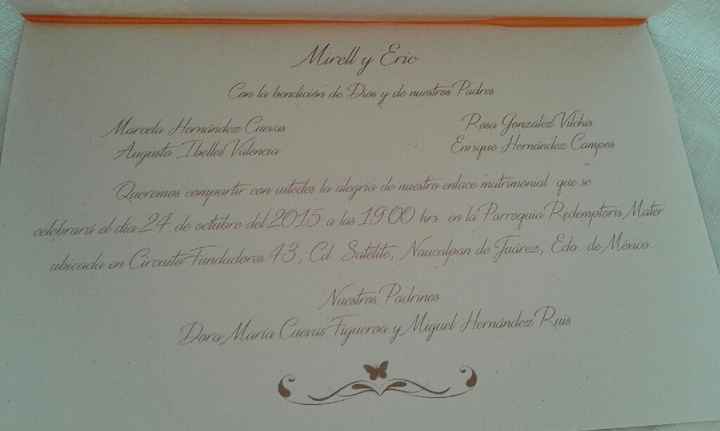 Mirell y Eric
Con la bendición de Dios y de nuestros Padres
Marcela Hernández Cuevas
Rosa González Vilchis
Augusto Ibelles Valencia
Enrique Hernández Campos
Queremos compartir con ustedes la alegría de nuestro enlace matrimonial que se
celebrará el día 24 de octubre del 2015 a las 19:00 hrs en la Parroquia Redemptoris Mater
ubicada en Circuito Fundadores 43, Cd. Satélite, Naucalpan de Juárez, Edo. de México
Nuestros Padrinos
Dora María Cuevas Figueroa y Miguel Hernández Ruis